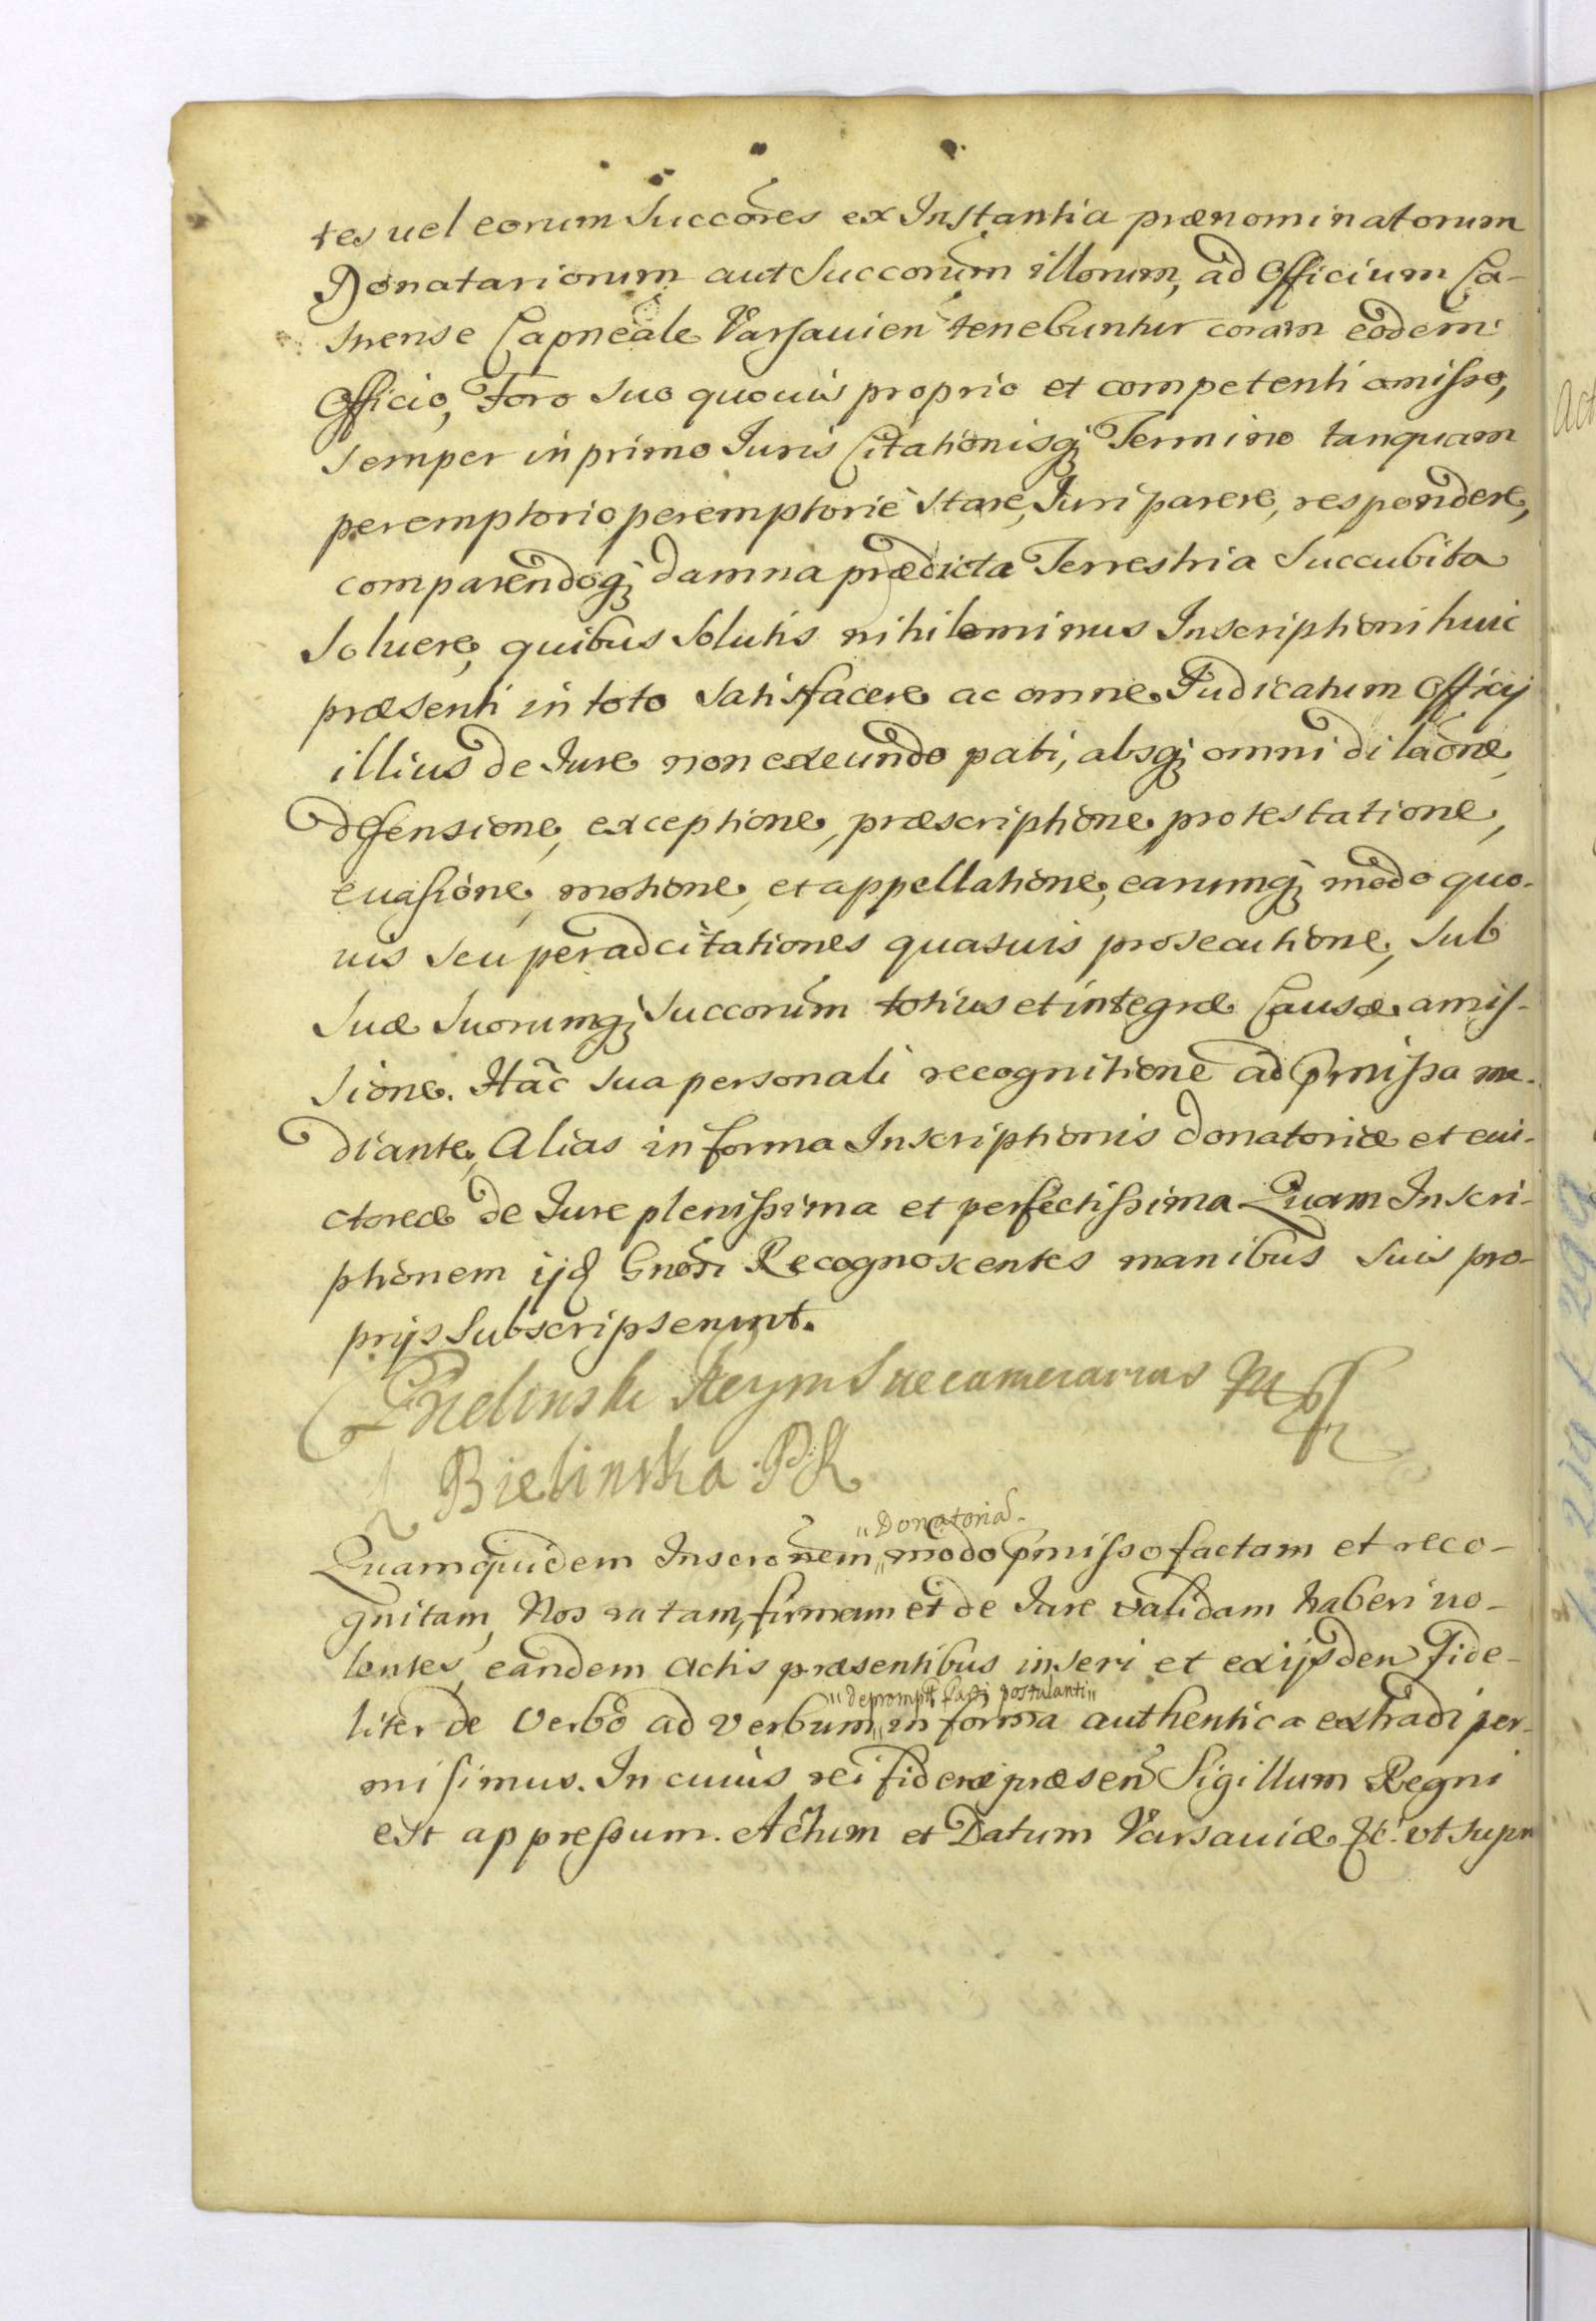 tes uel eorum Succōres ex Instantia prænominatorum
Donatariorum aut Succorum̄ illorum, ad Officium Ca-
strense Capneāle Varsauien̄ tenebuntur coram eodem
Officio, Foro suo quouis proprio et competenti omisso,
semper in primo Iuris Citationisq; Termino tanquam
peremptorio peremptoriè stare, Iuri parere, respondere,
comparendoq; damna prædicta Terrestria Succubita
soluere, quibus Solutis nihilominus Inscriptioni huic
præsenti in toto satisfacere ac omne Iudicatum Officij
illius de Iure non exeundo pati, absq; omni dilaōne,
defensione, exceptione, præscriptione protestatione,
euasione, motione, et appellatione, earumq; modo quo-
uis seu per adcitationes quasuis prosecutione, sub
suæ suorumq; Succorum̄ totius et integræ Causæ amis-
sione. Hāc sua personali recognitione ad p̄missa me-
diante, Alias in forma Inscriptionis donatoriæ et eui-
ctoreæ de Iure plenissima et perfectissima Quam Inscri-
ptionem ijd Gnōsi Recognoscentes manibus suis pro-
prijs Subscripserunt.
Bielinski Regni Succamerarius mp
Bielinska P. K
"Donatoriā
Quamquidem Inscrōnem " modo p̄misso factam et reco-
gnitam, Nos ratam, firmam et de Iure validam haberi uo-
lentes, eandem Actis præsentibus inseri et ex ijsdem Fide-
"deprompt parti postulanti"
liter de Verbo ad verbum " in forma authentica extradi per-
misimus. In cuius rei fidem præsen̄ Sigillum Regni
est appressum. Actum et Datum Varsauiæ &c. ut supra